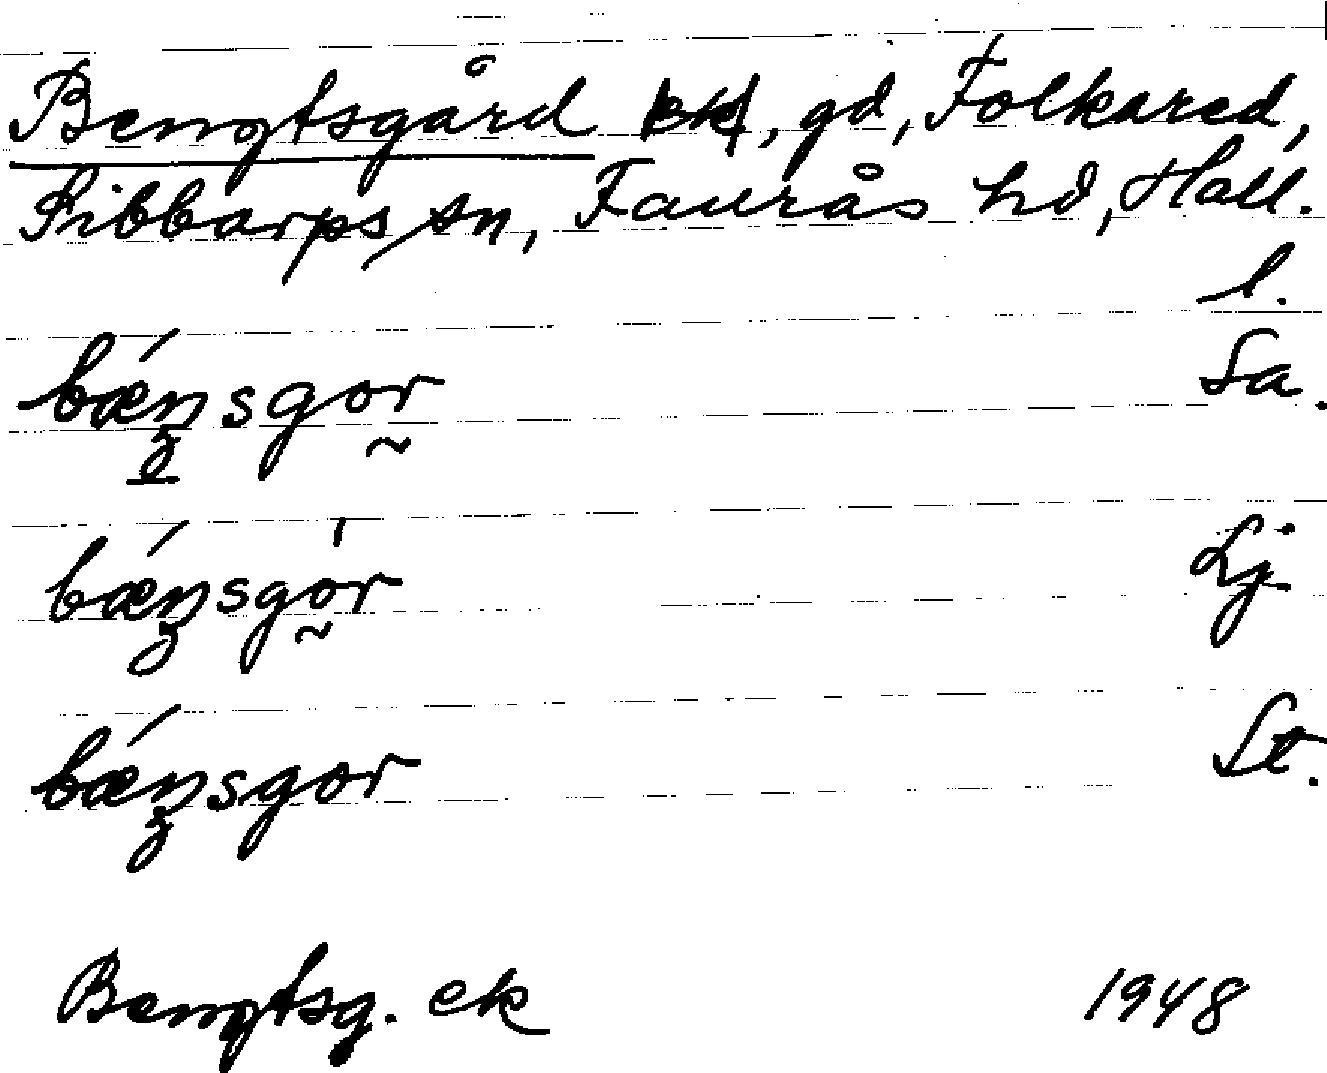 Bengtsgård |ek|, gd, Folkared,
Sibbarps sn, Faurås hd, Hall.
l.
bǽŋsgor Sa.
bǽŋsgo̍r Lj
bǽŋsgor St.
Bengtsg. ek 1948